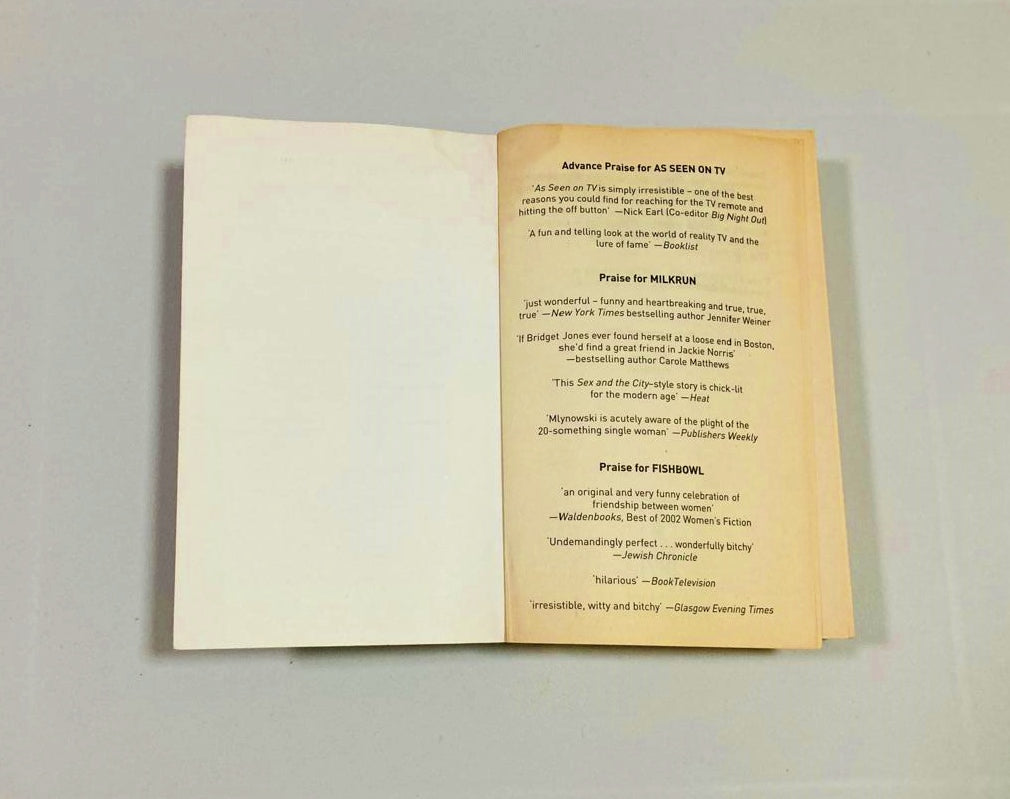 Advance Praise for AS SEEN ON TV
'As Seen on TV is simply irresistible – one of the best
reasons you could find for reaching for the TV remote and
hitting the off button' —Nick Earl (Co-editor Big Night Out)
'A fun and telling look at the world of reality TV and the
lure of fame' —Booklist
Praise for MILKRUN
'just wonderful – funny and heartbreaking and true, true,
true' —New York Times bestselling author Jennifer Weiner
'If Bridget Jones ever found herself at a loose end in Boston,
she'd find a great friend in Jackie Norris'
—bestselling author Carole Matthews
'This Sex and the City–style story is chick-lit
for the modern age' —Heat
'Mlynowski is acutely aware of the plight of the
20-something single woman' —Publishers Weekly
Praise for FISHBOWL
'an original and very funny celebration of
friendship between women'
—Waldenbooks, Best of 2002 Women's Fiction
'Undemandingly perfect . . . wonderfully bitchy'
—Jewish Chronicle
'hilarious' —BookTelevision
'irresistible, witty and bitchy' —Glasgow Evening Times